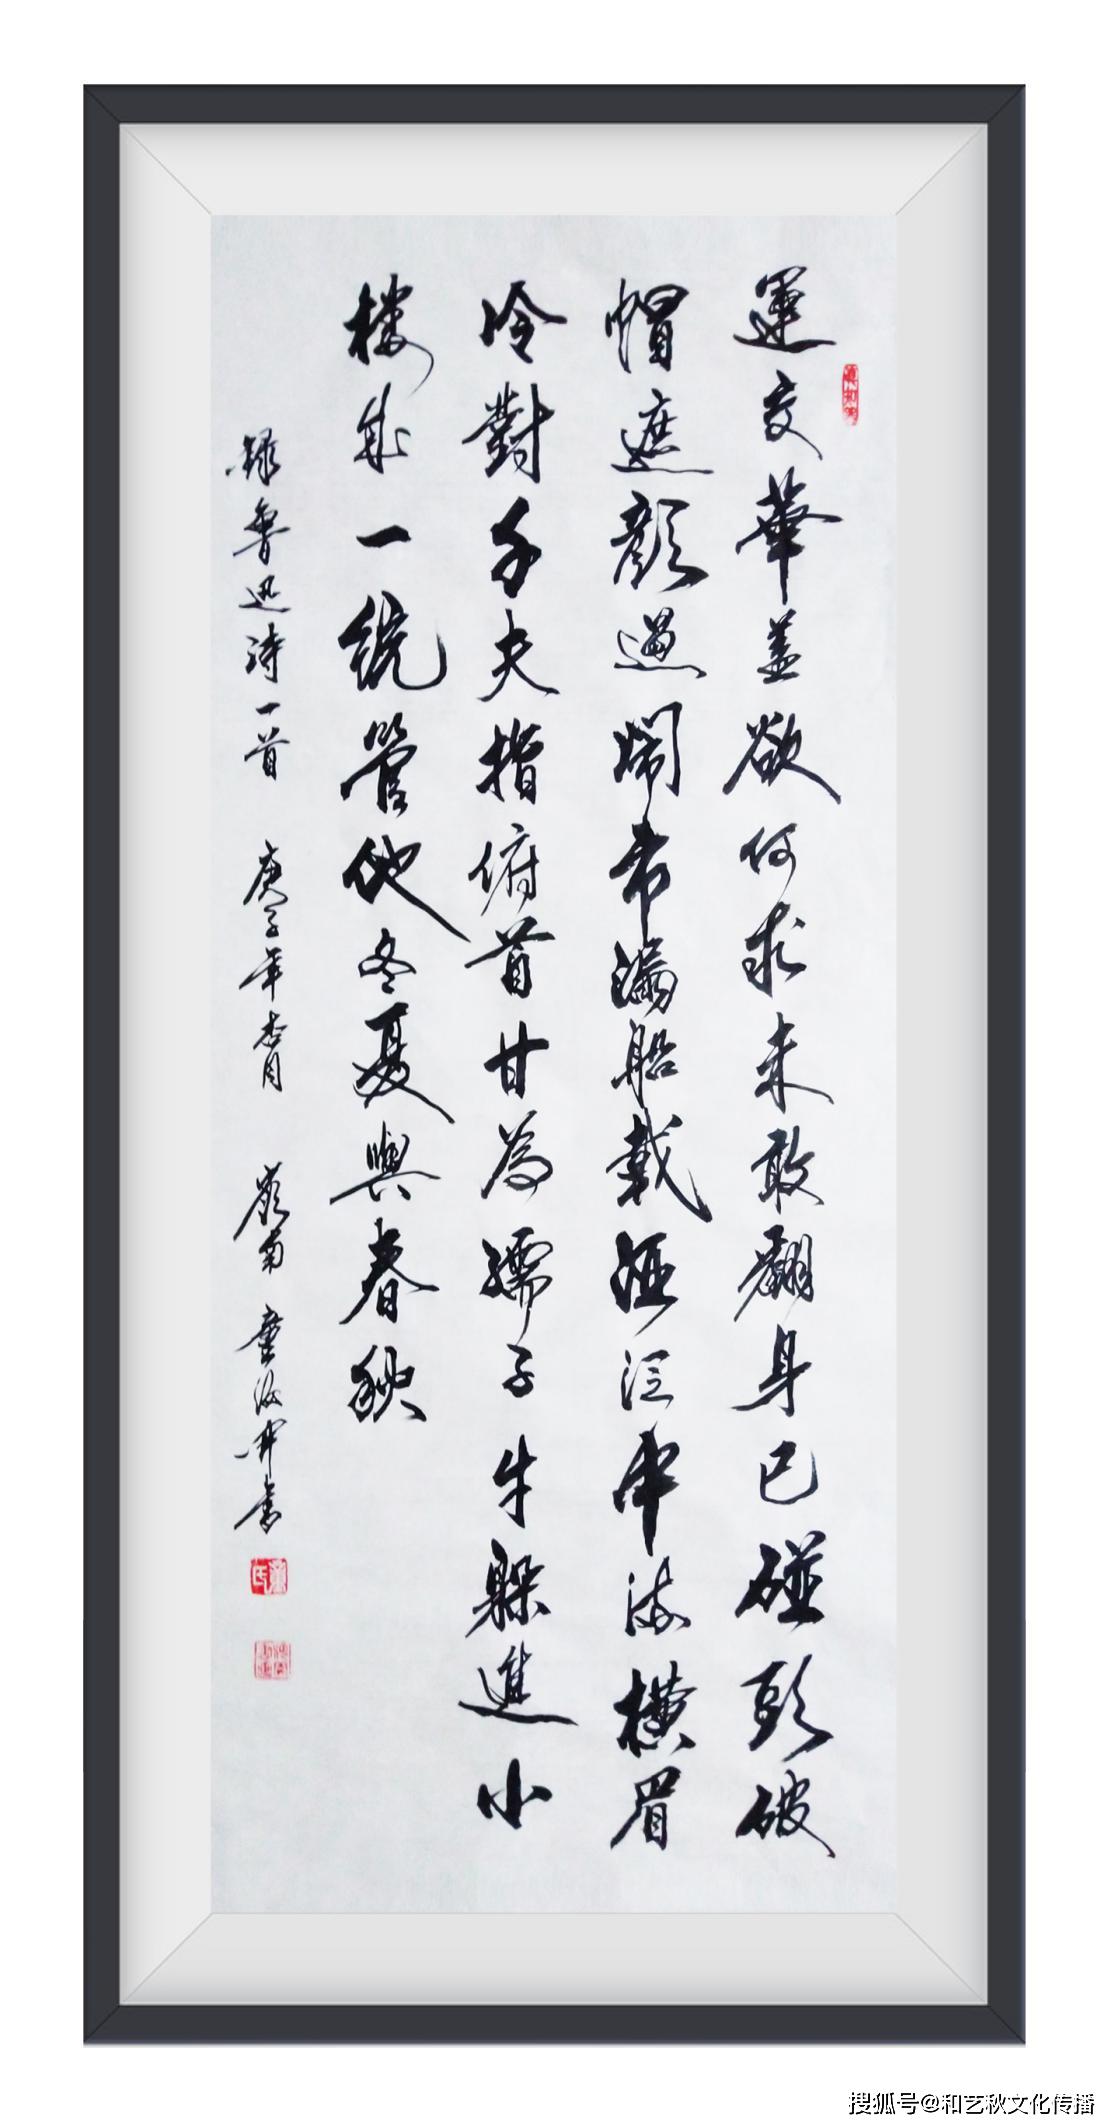 運交華盖欲何求未敢翻身已碰頭破
帽遮顏過鬧市漏船載酒泛中流橫眉
冷對千夫指俯首甘為孺子牛躲進小
楼成一統管他冬夏與春秋
録魯迅诗一首 庚子年杏月 嶺南 書
搜狐号@和艺秋文化传播